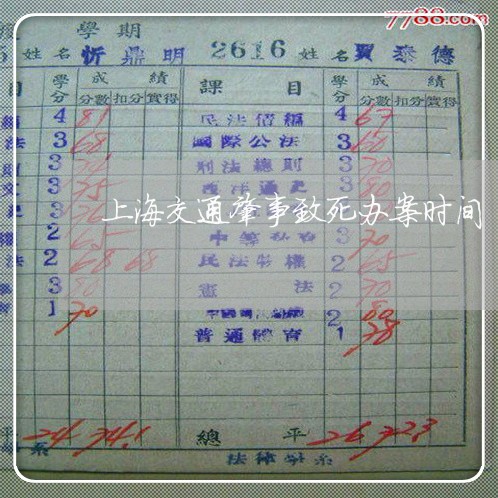 7788.com
學期
5 姓名 忻鼎明 2616 姓名 賈泰德
目 學分 成績 課目 學分 成績
分數 扣分 實得 分數 扣分 實得
4 81 民法債編 4 67
法 3 68 國際公法 3 60
3 刑法總則 3 70
3 75 3 80
上海交通肇事致死办案时间
2 65 3 70
法 2 68 68 民法物權 2 65
3 80 憲法 2 70
1 70 2 80
普通體育 1 78
平 24 74.1 總平 26 72.3
系 法律學系